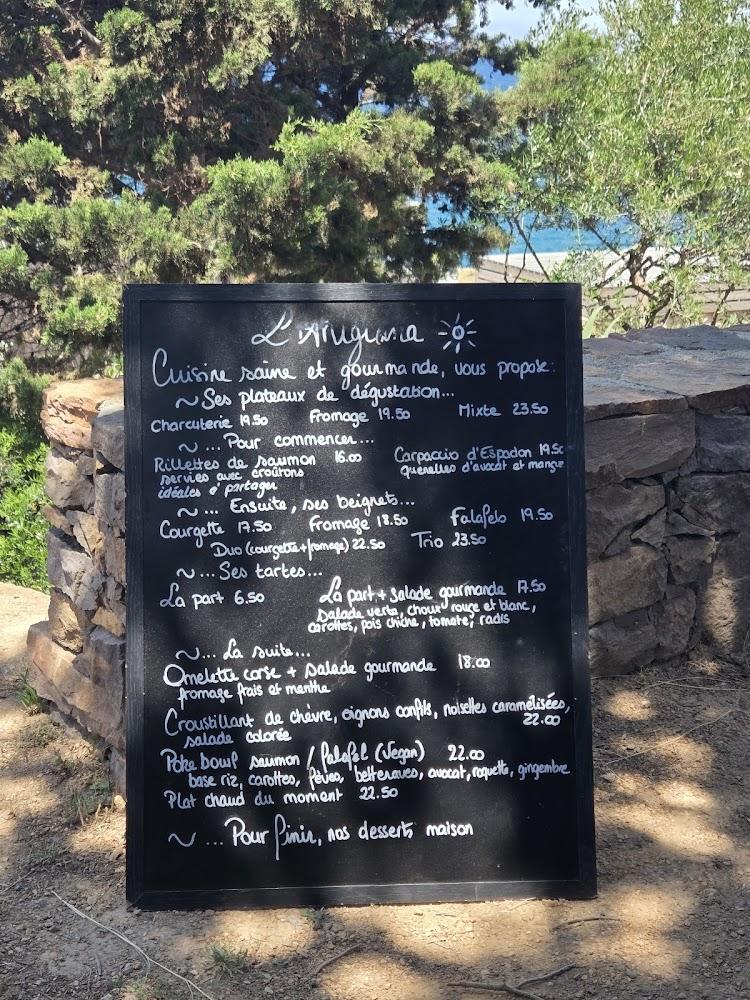 L'Artigiana
Cuisine saine et gourmande, vous propose:
~ Ses plateaux de dégustation...
Charcuterie 19.50 Fromage 19.50 Mixte 23.50
~ ... Pour commencer...
Rillettes de saumon 16.00 Carpaccio d'Espadon 19.50
servies avec croûtons quenelles d'avocat et mangue
idéales à partager
~ ... Ensuite, ses beignets...
Courgette 17.50 Fromage 18.50 Falafels 19.50
Duo (courgette+fromage) 22.50 Trio 23.50
~ ... Ses tartes...
La part 6.50 La part + salade gourmande 17.50
salade verte, choux rouge et blanc,
carottes, pois chiche, tomate, radis
~ ... La suite...
Omelette corse + salade gourmande 18.00
fromage frais et menthe
Croustillant de chèvre, oignons confits, noisettes caramélisées,
22.00
salade colorée
Poke bowl saumon / falafel (Vegan) 22.00
base riz, carottes, fèves, betteraves, avocat, roquette, gingembre
Plat chaud du moment 22.50
~ ... Pour finir, nos desserts maison